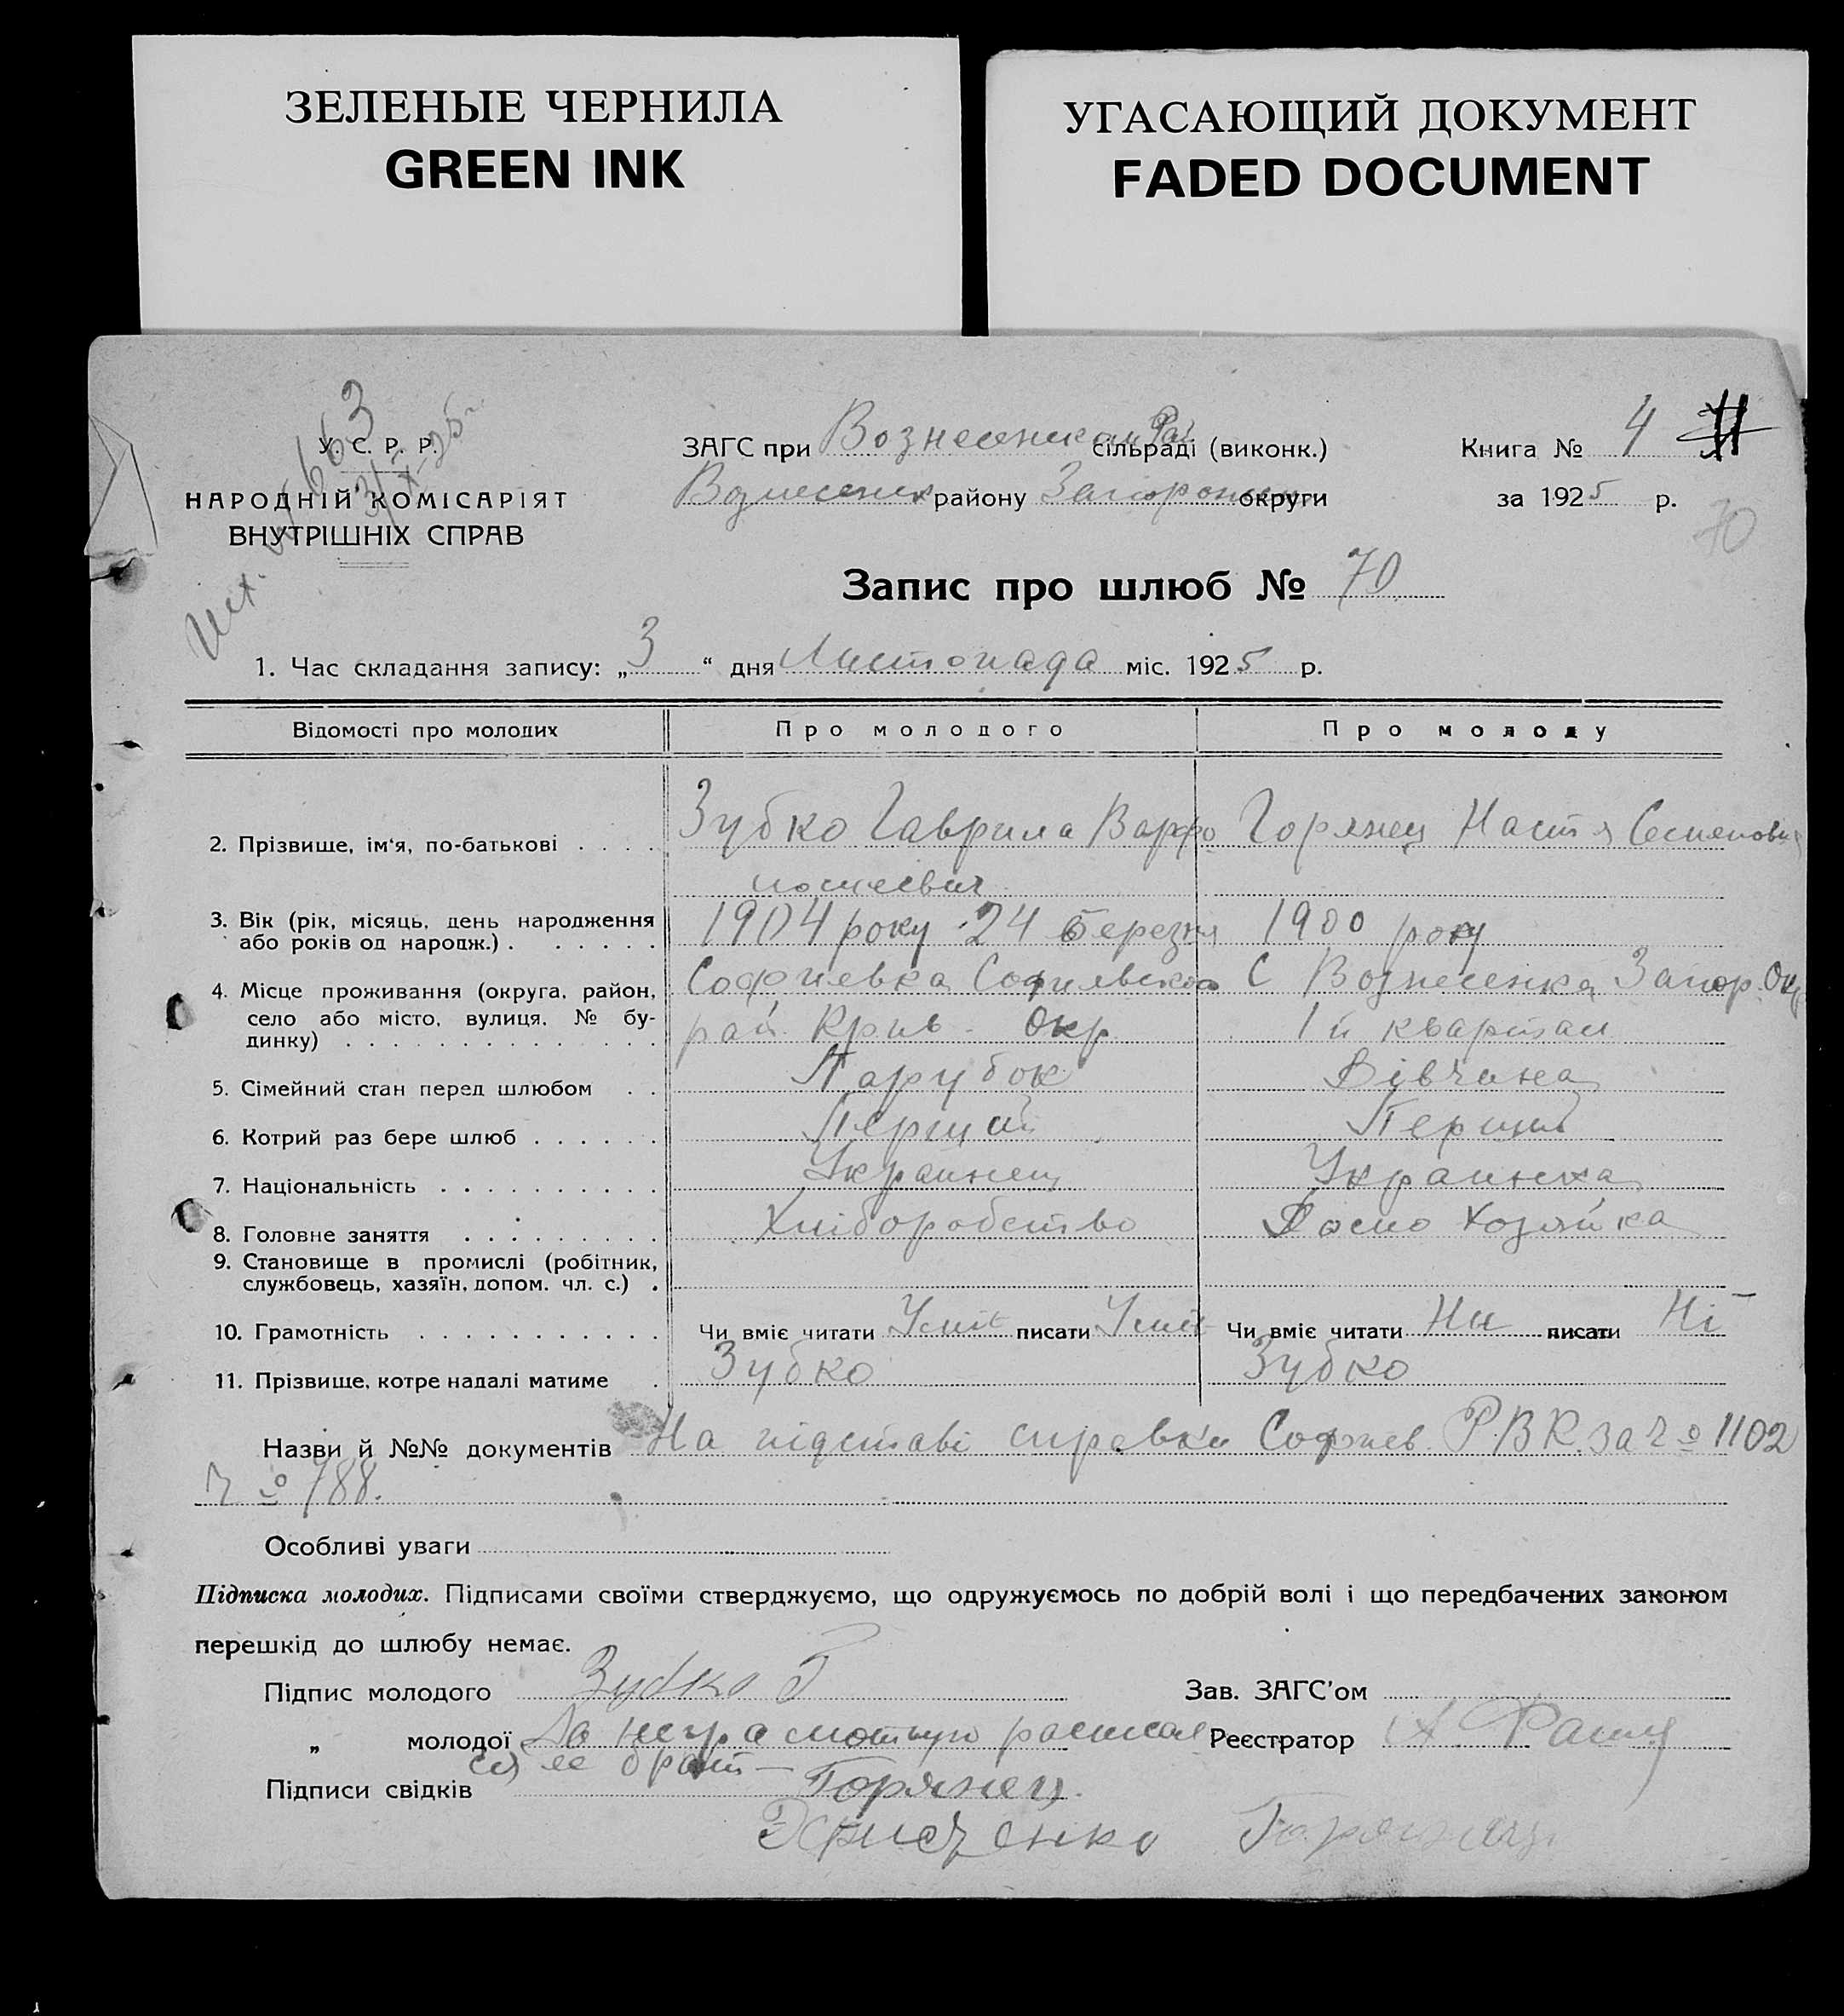 ЗЕЛЕНЫЕ ЧЕРНИЛА
GREEN INK
УГАСАЮЩИЙ ДОКУМЕНТ
FADED DOCUMENT
У. С. Р. Р.
НАРОДНІЙ КОМІСАРІЯТ
ВНУТРІШНІХ СПРАВ
ЗАГС при Вознесенском Рай сільраді (виконк.)
Вознесенк району Запорожск округи
Книга № 4
за 1925 р.
70
Запис про шлюб № 70
1. Час складання запису: „3“ дня Листопада міс. 1925 р.
Відомості про молодих Про молодого Про молоду
2. Прізвище, ім'я, по-батькові . . . . Зубко Гаврила Варфо Горянец Настя Семеновн
ломеевич
3. Вік (рік, місяць, день народження 1904 року 24 березня 1900 року
або років од народж.) . . . . . .
4. Місце проживання (округа, район, Софиевка Софиевского С Вознесенка Запор. Окр
село або місто, вулиця, № бу-
динку) . . . . . . . . . . . . . . рай. Крив. Окр. 1й квартал
5. Сімейний стан перед шлюбом . . Парубок Дівчина
6. Котрий раз бере шлюб . . . . . . Перший Перший
7. Національність . . . . . . . . . . Украинец Украинка
8. Головне заняття . . . . . . . . . Хліборобство Домо Хозяйка
9. Становище в промислі (робітник,
службовець, хазяїн, допом. чл. с.) .
10. Грамотність . . . . . . . . . . . Чи вміє читати Уміє писати Уміє Чи вміє читати Ни писати Ні
11. Прізвище, котре надалі матиме . Зубко Зубко
Назви й №№ документів На підставі справки Софиев. Р.В.К. за Ч⁰ 1102
Ч⁰ 788.
Особливі уваги
Підписка молодих. Підписами своїми стверджуємо, що одружуємось по добрій волі і що передбачених законом
перешкід до шлюбу немає.
Підпис молодого Зубко Г Зав. ЗАГС'ом
„ молодої За неграмотную расписал Реєстратор
ся ее брат — Горянец.
Підписи свідків
Горянец